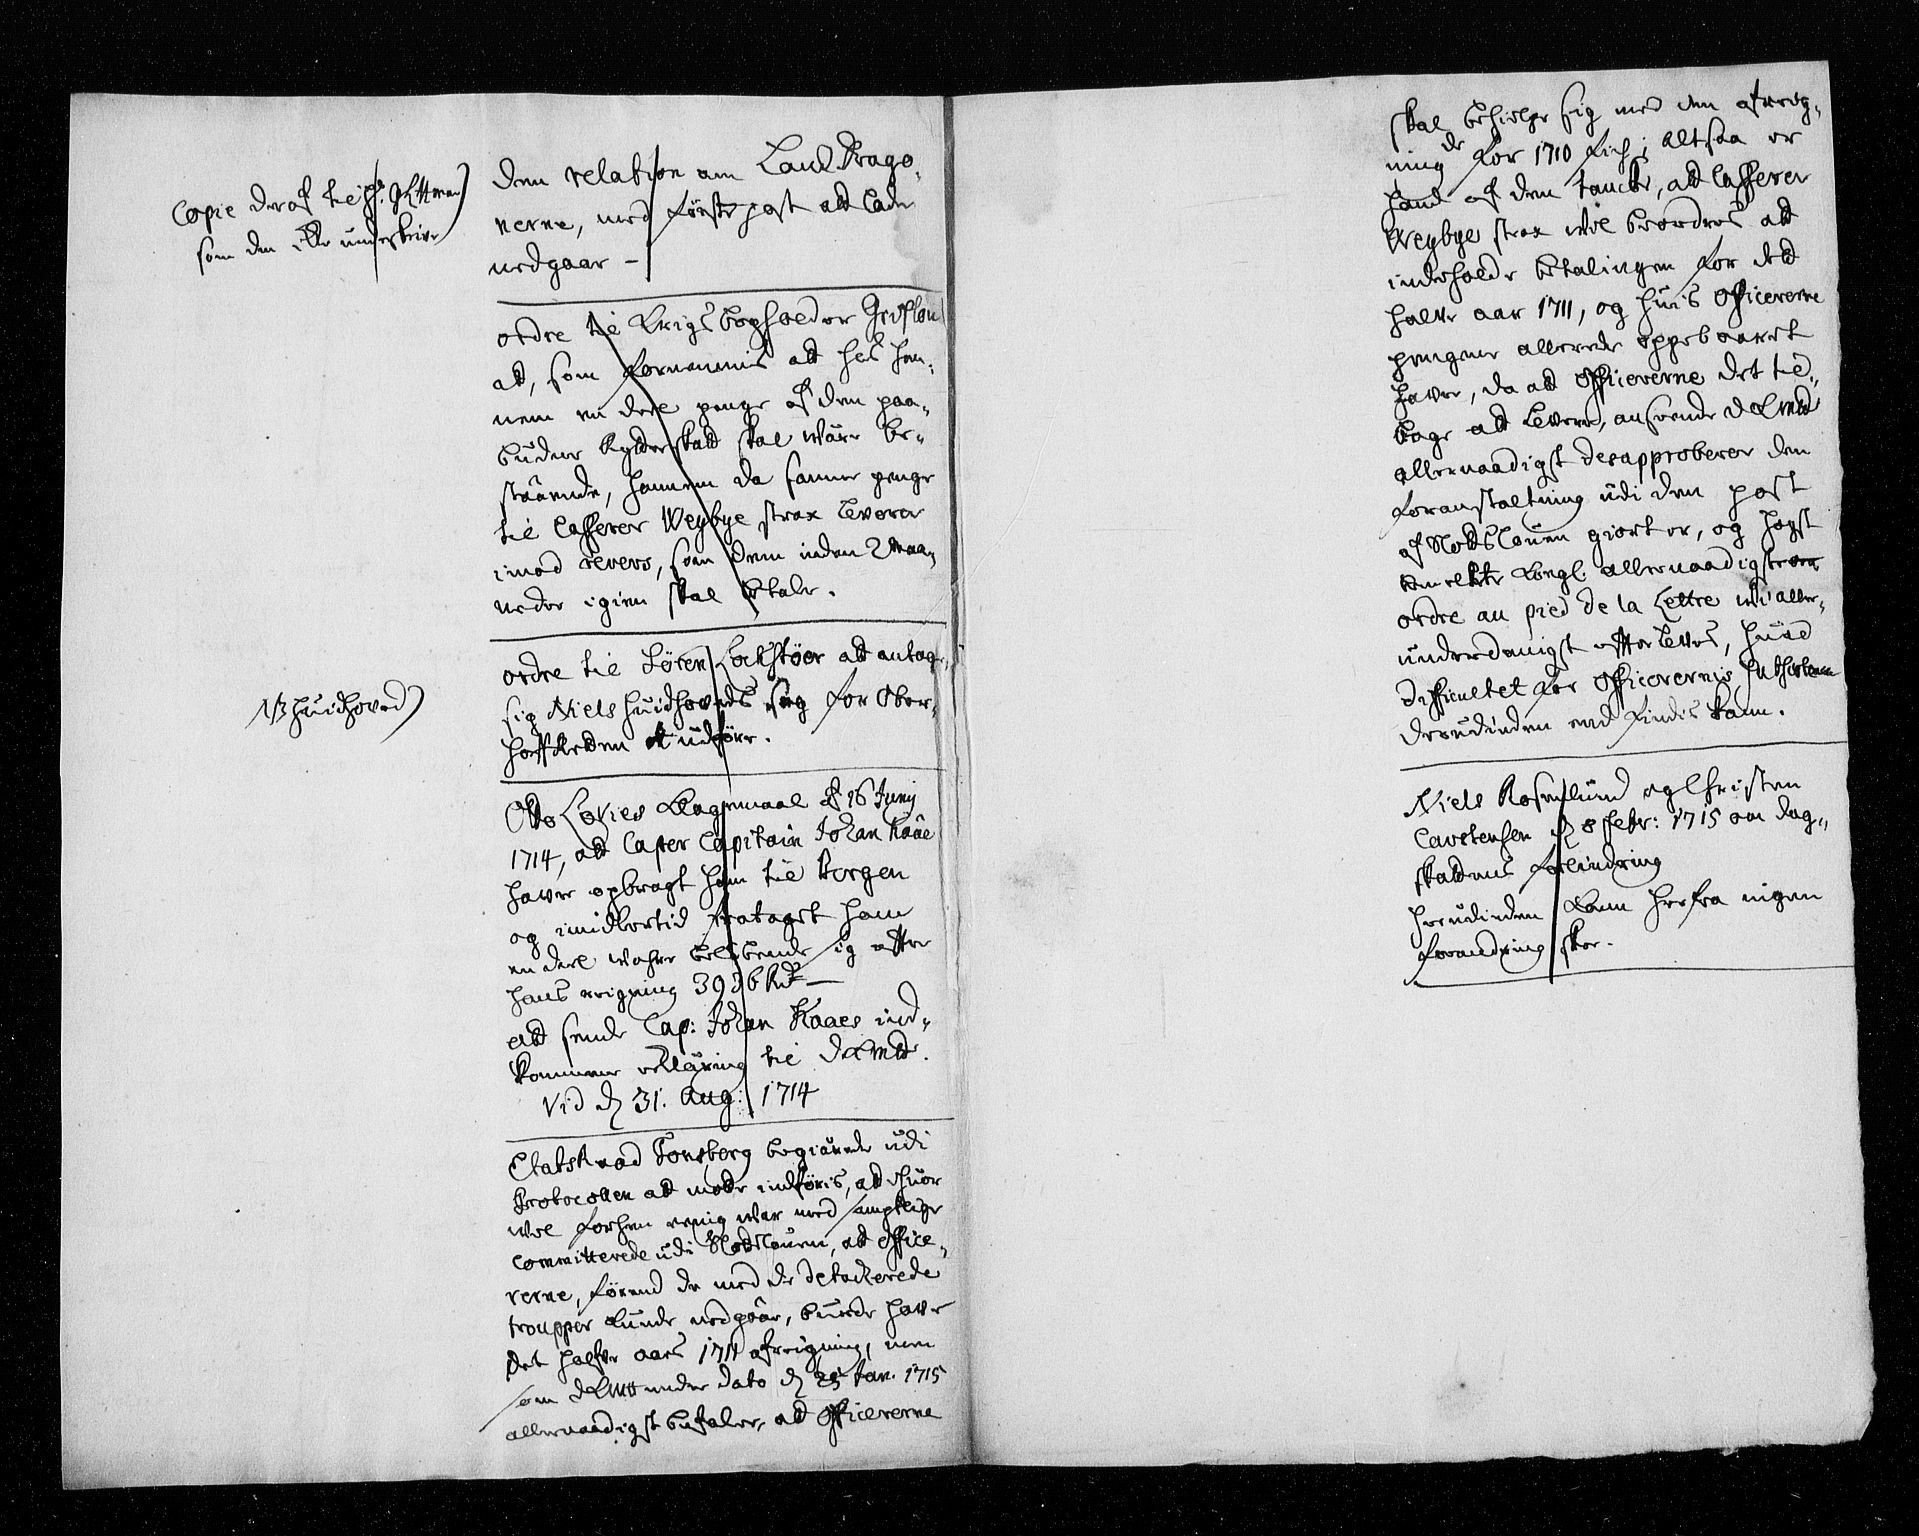 Copie deraf til Hr. Gittman
som den Ehr underskriver
den relation om Land Drago-
nerne, med første post att lade
nedgaar –
ordre til Krigs Bogholder Greflund
at, som fornemmis att hos han-
nem en deel penge af den paa-
budne Rytterskatt skal være be-
staaende, hannem da samme penge
til Casserer Weybye strax leverer
imod revers, som dem inden 2 maa-
neder igien skal betale.
NB Huidhoved
ordre til Sören Lockstöer att antage
sig Niels Huidhoveds sag for Ober-
hoffRetten at udføre.
Otto Lovies Klagemaal af 16 Junij
1714, att Caper Capitain Johan Kaae
haver opbragt ham til Bergen
og imidlertid frataget ham
en deel wahre belöbende sig efter
hans reigning 3936 Rdr –
att sende Cap: Johan Kaaes ind-
kommene erklæring til D K Mtt.
Vid d. 31. Aug: 1714
EtatsRaad Tonsberg begiærede udi
Protocollen att motte indføris, att huor
wel forhen eenig war med samptlige
Committerede udi Slotsloven, att office-
rerne, förend de med de detacherede
troupper kunde nedgaar, burde have
det halfve aars 1711 afreigning, men
som D K Mtt under dato d. 25 Jan. 1715
allernaadigst befaler, att Officererne
skal behielpe sig med den afreig-
ning de for 1710 fich; altsaa er
hand af den tancke, att Casserer
Weybye strax wil beordres att
indeholde betalingen for dett
halve aar 1711, og huis Officererne
pengene allerede oppebaaret
haver, da att Officererne det til-
bage att levere, anseende D K Mtt
allernaadigst desapproberer den
foranstaltning udi den post
af Slotsloven giort er, og högst
bemelte Kongl. allernaadigste
ordre au pied de la Lettre wi aller-
underdanigst efterleves, huad
difficultet for Officerernis
derudinden end findis kann.
Niels Rosenlund og Christen
Carstensen d. 8 febr: 1715 om dag-
skattens forlindring
herudinden kann herfra ingen
forandring skee.